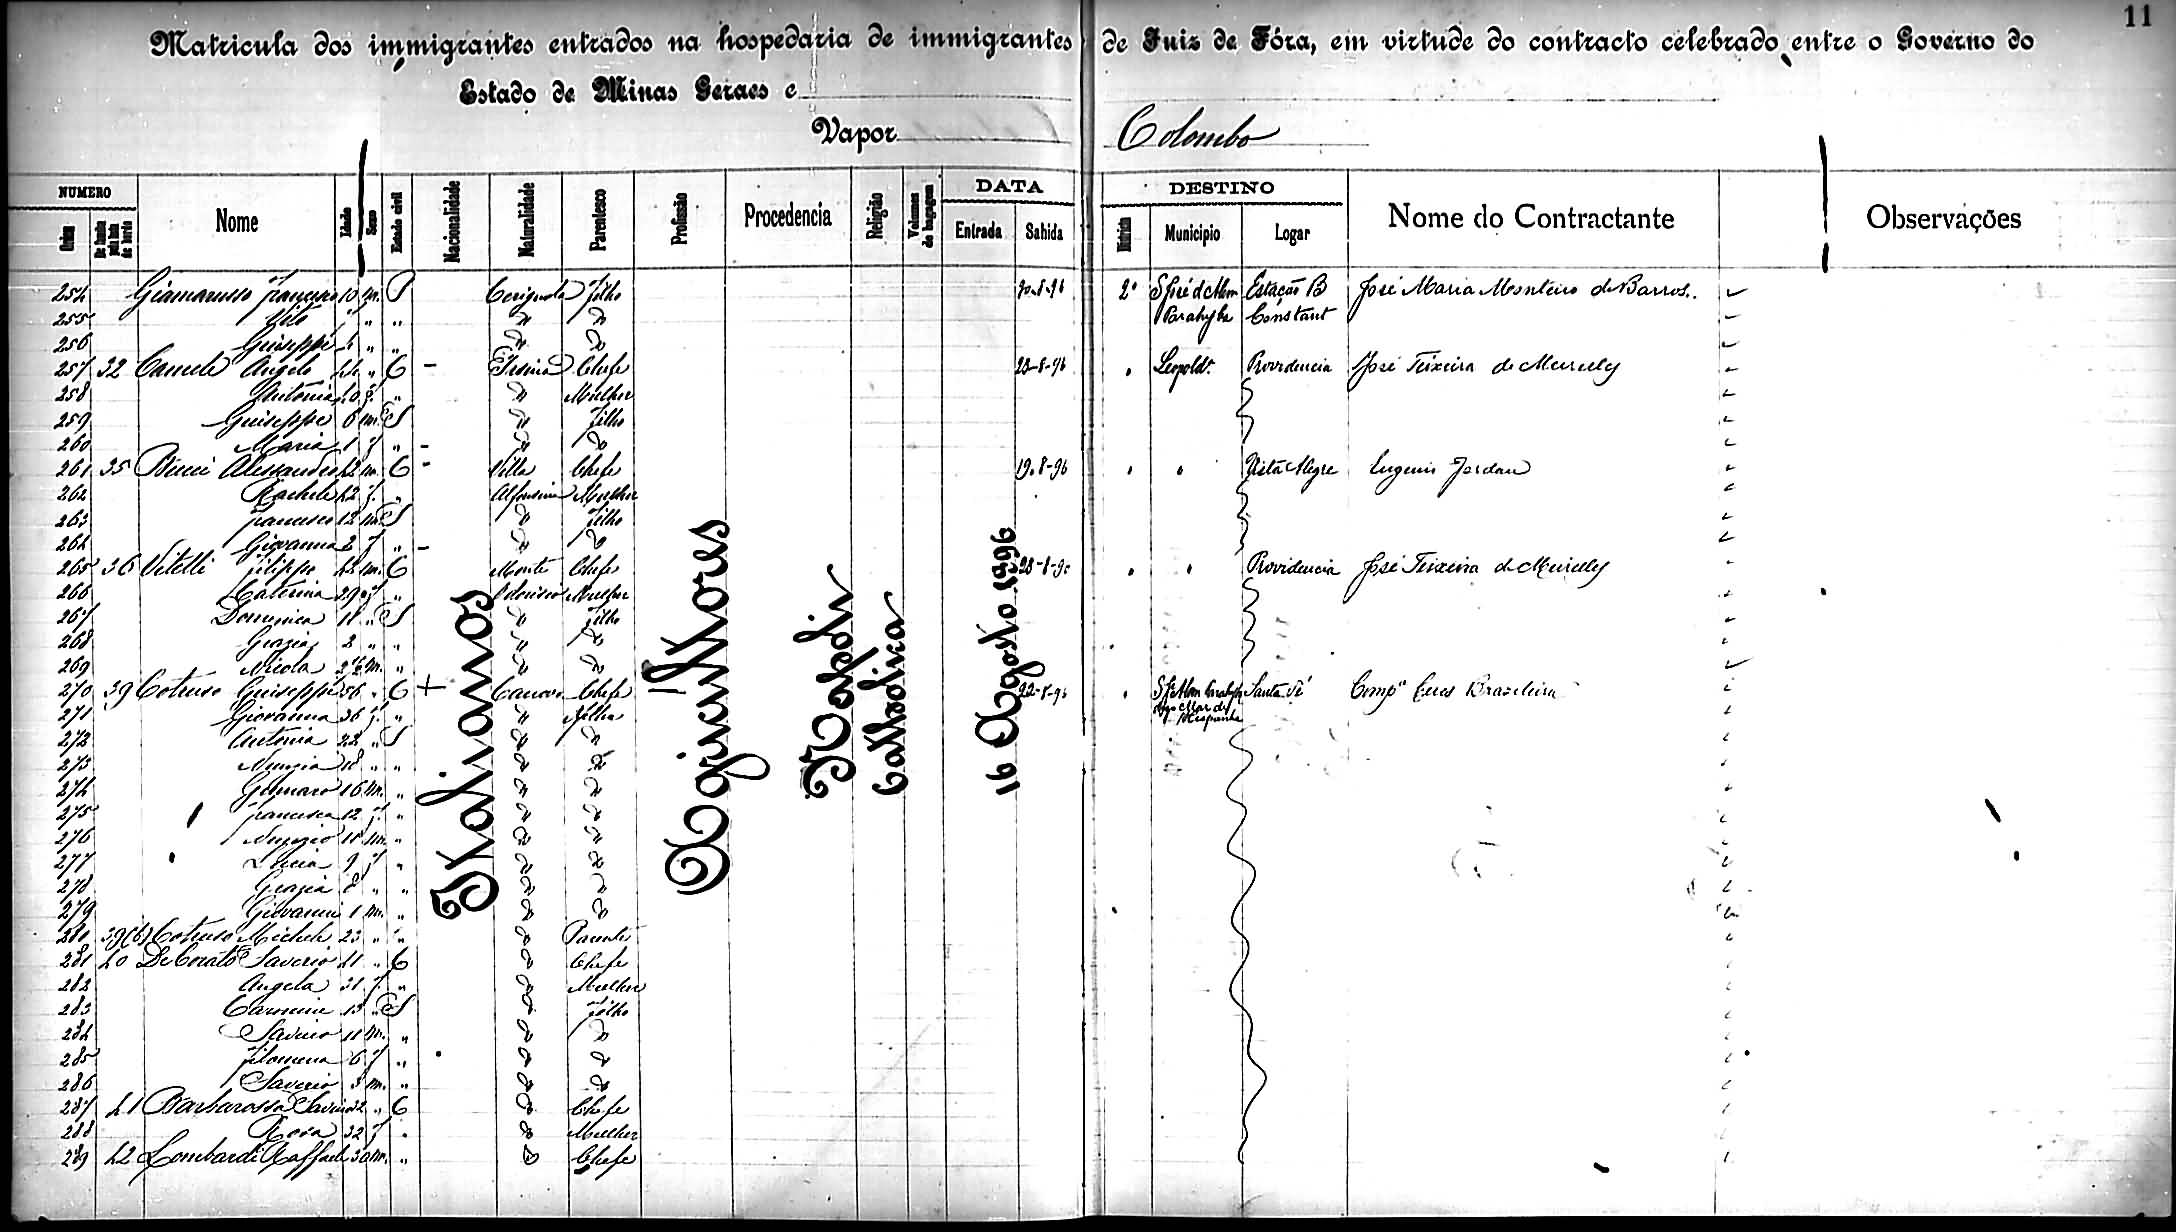 11
Matricula dos immigrantes entrados na hospedaria de immigrantes de Juiz de Fóra, em virtude do contracto celebrado entre o Governo do
Estado de Minas Geraes e
Vapor Colombo
NUMERO DATA DESTINO
Ordem Nome Idade Sexo Estado civil Nacionalidade Naturalidade Parentesco Profissão Procedencia Religião Volumes de bagagem Entrada Sahida Districto Municipio Logar Nome do Contractante Observações
254 Giamarusso Francesco 10 m. S Cerignola Filho 20-8-96 2º S José d'Alem Estação B José Maria Monteiro de Barros.
255 Vito " " " Parahyba Constant
256 Giuseppe " "
257 32 Canele Angelo " C - Irsina Chefe 22-8-96 " Leopold. Providencia José Teixeira de Meirelles
258 Antonia f. " " Mulher
259 Giuseppe 6 m. S " Filho
260 Maria 1 f " - "
261 35 Bucci Alessandro 42 m. C - Villa Chefe 19-8-96 " " Vista Alegre Eugenio Jordan
262 Rachele 42 f. " Alfonsina Mulher
263 Francesco 12 m. S Filho
264 Giovanna 2 f " -
265 36 Vitelli Filippo m. C Monte Chefe 23-8-96 " " Providencia José Teixeira de Meirelles
266 Caterina 29 f " Odorisio Mulher
267 Domenica 11 " S Filho
268 Grazia 2 " "
269 Nicola m. "
270 39 Cotruso Giuseppe 56 " C + Canova Chefe 22-8-96 " Santa Fé Comp.ª Brazileira
271 Giovanna 36 f. " " Filha Mar de Hespanha
272 Antonia 22 " S
273 Nunzia 18 " "
274 Gennaro 16 m. "
275 Francesca 12 f. "
276 Nunzio 11 m. "
277 Lucia 9 f "
278 Grazia 8 " "
279 Giovanni 1 m. "
280 39(b) Cotruso Michele 23 " " Parente
281 40 De Corato Saverio 41 " C Chefe
282 Angela 31 f. " Mulher
283 Carmine 13 " S Filho
284 Savino 11 m. "
285 Filomena 6 f "
286 Saverio 3 m. "
287 41 Barbarossa Savino 32 " C Chefe
288 Rosa 32 f " Mulher
289 42 Lombardi Raffaele 30 m. " Chefe
Italianos
Agricultores
Catholica
16 Agosto 1896